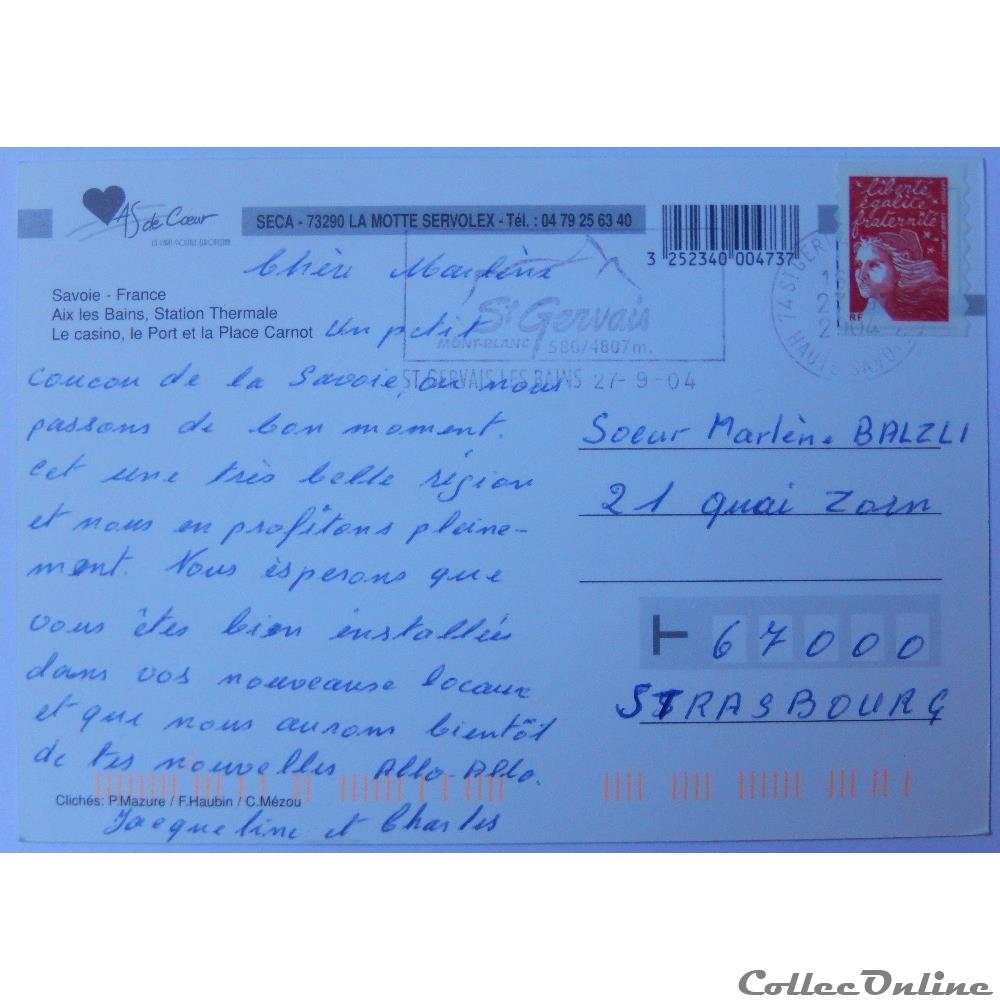 AS de Cœur
LA CARTE POSTALE EUROPEENNE
SECA - 73290 LA MOTTE SERVOLEX - Tél. : 04 79 25 63 40
3 252340 004737
liberté
égalité
fraternité
RF
74 ST GERVAIS
27
2004
HAUTE SAVOIE
St Gervais
MONT-BLANC 580/4807m.
ST GERVAIS LES BAINS 27-9-04
Savoie - France
Aix les Bains, Station Thermale
Le casino, le Port et la Place Carnot
Chère Marlène
Un petit
coucou de la Savoie, ou nous
passons de bon moment.
Cet une très belle région
et nous en profitons pleine-
ment. Nous èsperons que
vous êtes bien installées
dans vos nouveause locaux
et que nous aurons bientôt
de tes nouvelles Allo-Allo.
Jacqueline et Charles
Clichés: P.Mazure / F.Haubin / C.Mézou
Soeur Marlène BALZLI
21 quai Zorn
67000
STRASBOURG
CollecOnline